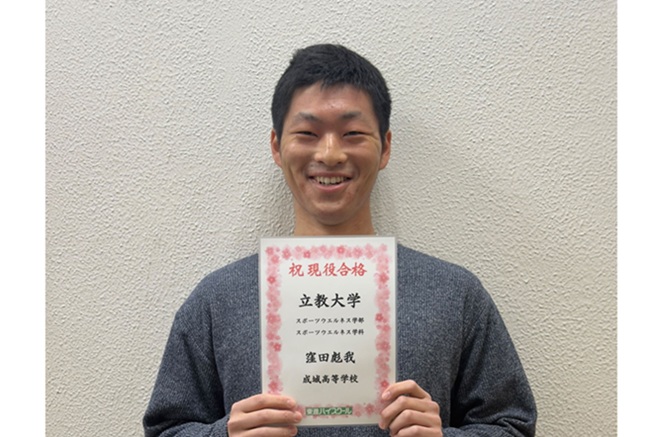 祝 現役合格
立教大学
スポーツウエルネス学部
スポーツウエルネス学科
窪田彪我
成城高等学校
東進ハイスクール